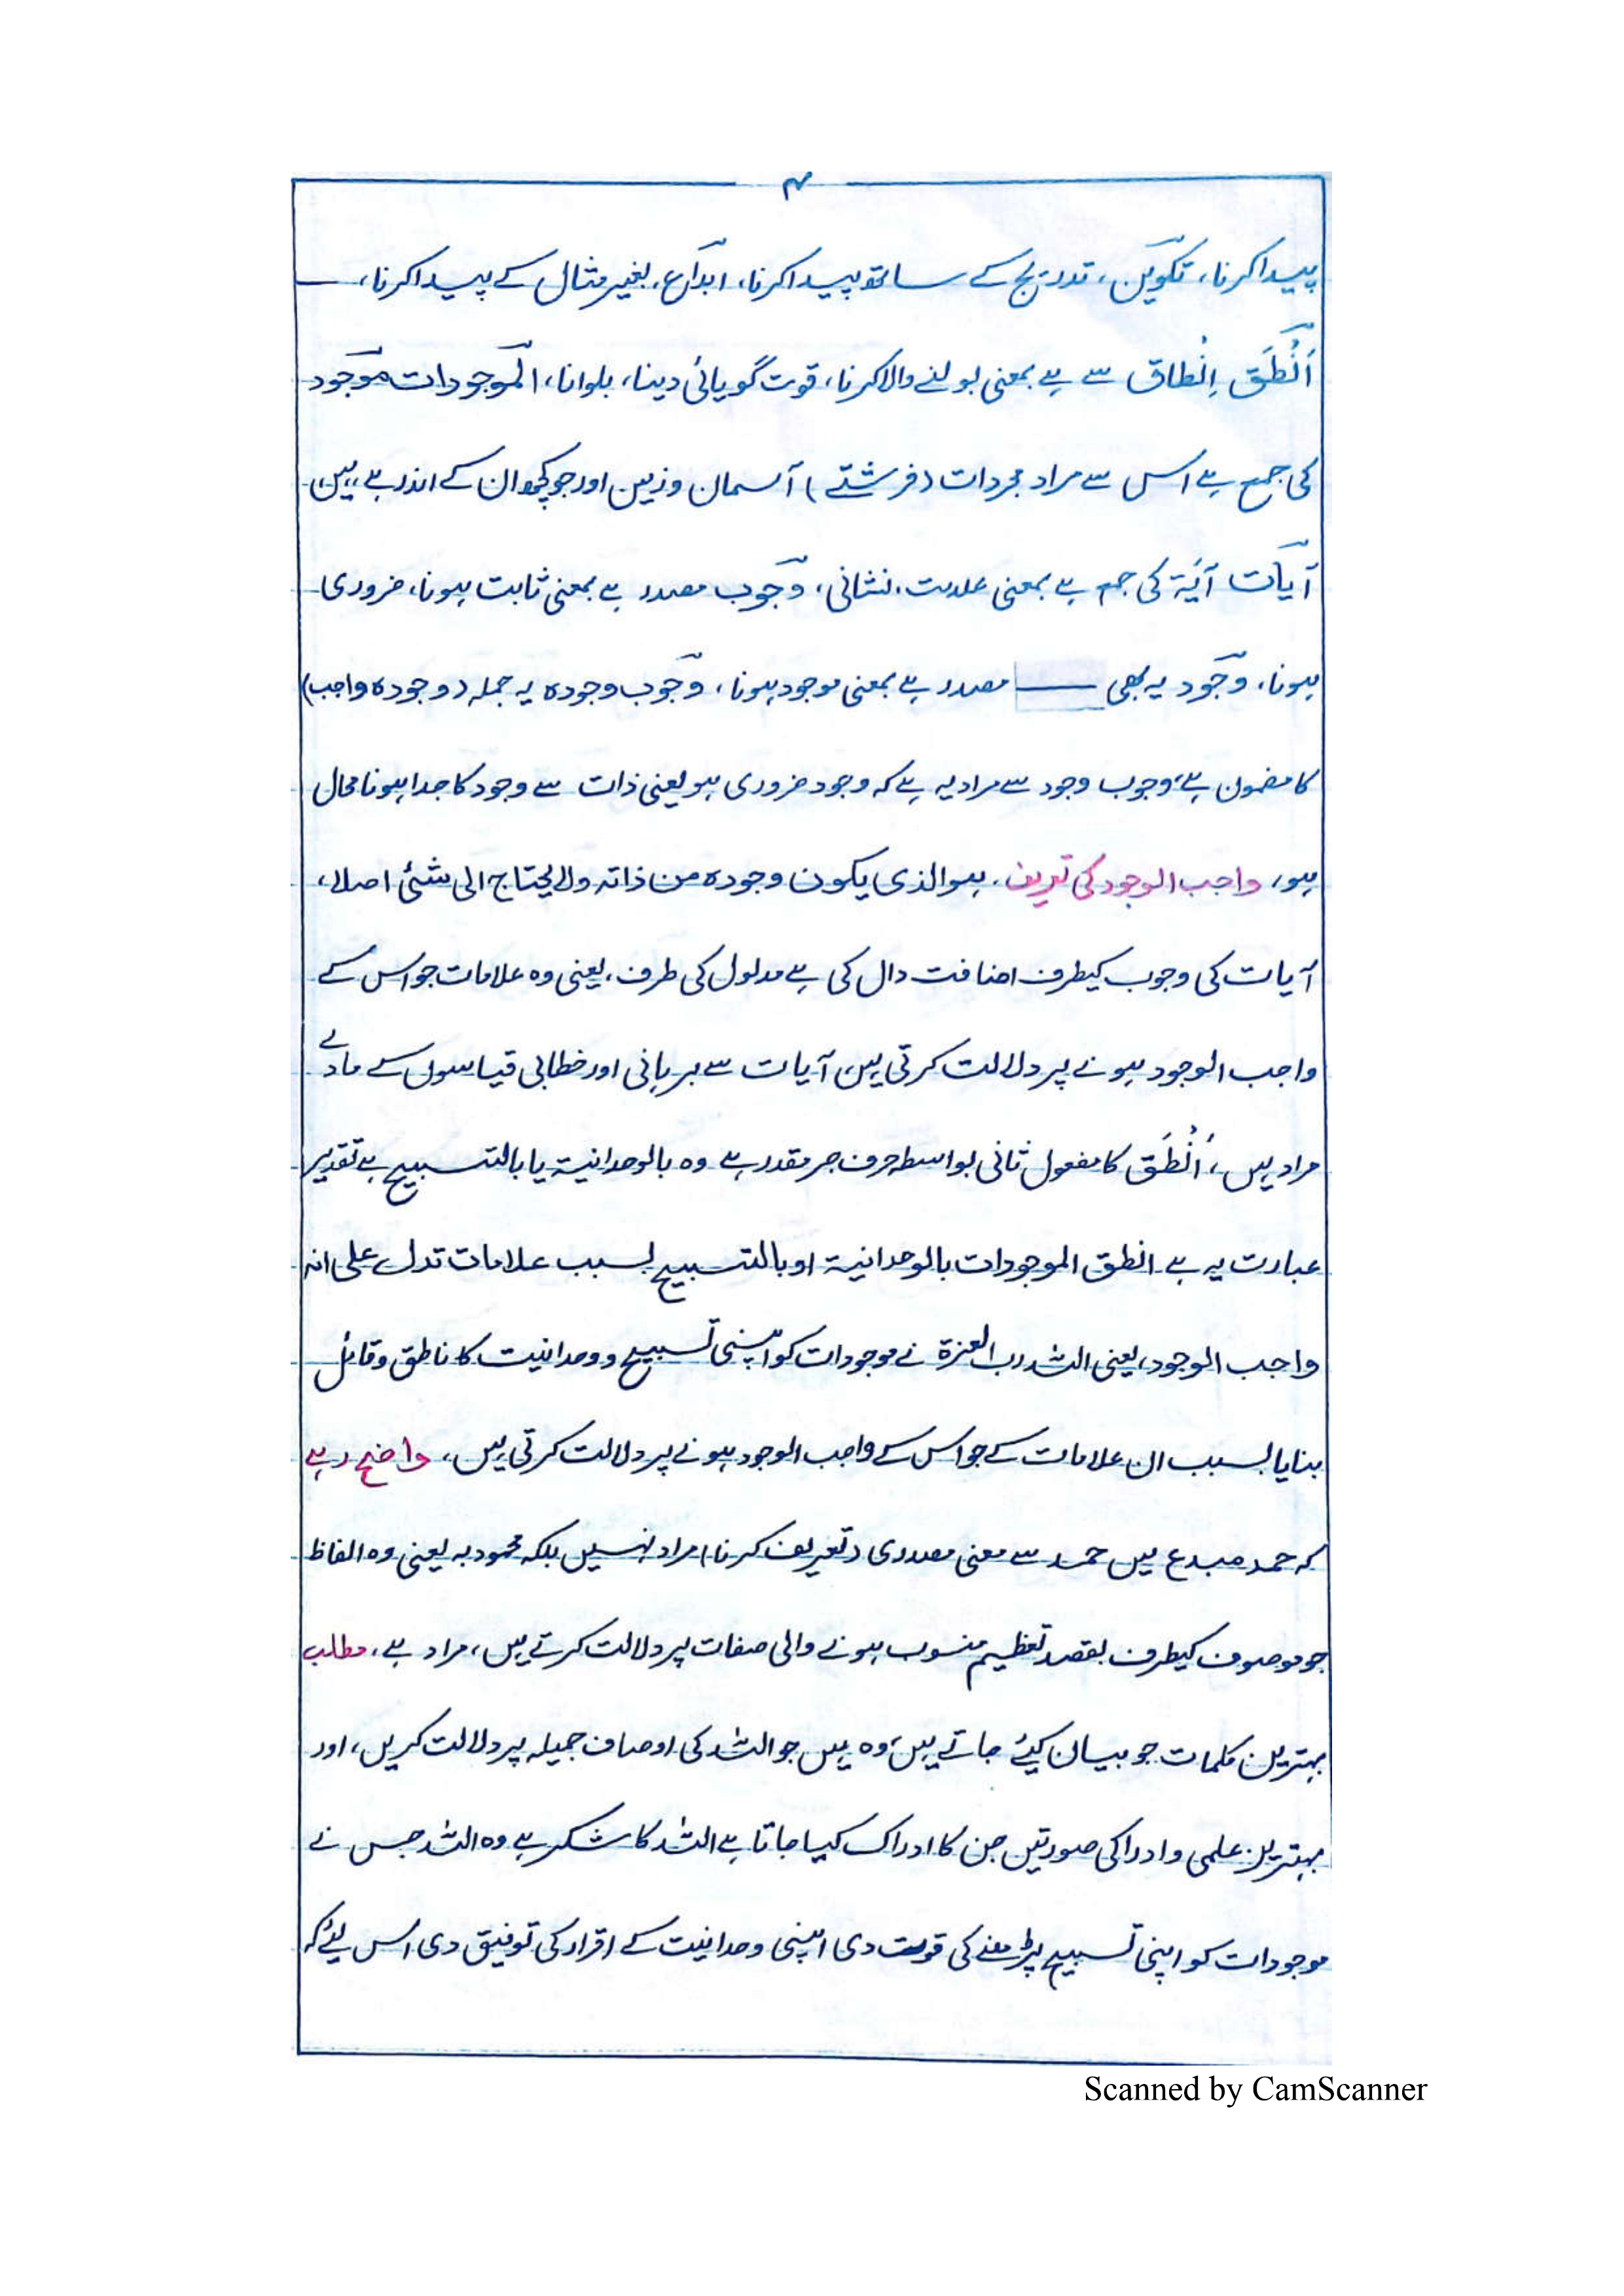 ۴
پیدا کرنا، تکوین، تدریج کے ساتھ پیدا کرنا، ابداع، بغیر مثال کے پیدا کرنا،
اَنْطَقَ اِنْطاق سے ہے بمعنی بولنے والا کرنا، قوت گویائی دینا، بلوانا، الموجودات موجود
کی جمع ہے اس سے مراد مجردات (فرشتے) آسمان و زمین اور جو کچھ ان کے اندر ہے، ہیں،
آیات آیَۃ کی جمع ہے بمعنی علامت، نشانی، وجوب مصدر ہے بمعنی ثابت ہونا، ضروری
ہونا، وجود یہ بھی مصدر ہے بمعنی موجود ہونا، وجوب وجودہ یہ جملہ (وجودہ واجب)
کا مضمون ہے، وجوب وجود سے مراد یہ ہے کہ وجود ضروری ہو یعنی ذات سے وجود کا جدا ہونا محال
ہو، واجب الوجود کی تعریف، ہو الذی یکون وجودہ من ذاتہ ولا یحتاج الی شئی اصلا،
آیات کی وجوب کیطرف اضافت دال کی ہے مدلول کی طرف، یعنی وہ علامات جو اس کے
واجب الوجود ہونے پر دلالت کرتی ہیں، آیات سے برہانی اور خطابی قیاسوں کے مادے
مراد ہیں، اَنْطَقَ کا مفعول ثانی بواسطہ حرف جر مقدر ہے وہ بالوحدانیۃ یا بالتسبیح ہے تقدیر
عبارت یہ ہے انطق الموجودات بالوحدانیۃ او بالتسبیح بسبب علامات تدل علی انہ
واجب الوجود، یعنی اللہ رب العزۃ نے موجودات کو اپنی تسبیح و وحدانیت کا ناطق و قائل
بنایا بسبب ان علامات کے جو اس کے واجب الوجود ہونے پر دلالت کرتی ہیں، واضح رہے
کہ حمد مبدع میں حمد سے معنی مصدری (تعریف کرنا) مراد نہیں بلکہ محمود بہ یعنی وہ الفاظ
جو موصوف کیطرف بقصد تعظیم منسوب ہونے والی صفات پر دلالت کرتے ہیں، مراد ہے، مطلب
بہترین کلمات جو بیان کیئے جاتے ہیں، وہ ہیں جو اللہ کی اوصاف جمیلہ پر دلالت کریں، اور
بہترین علمی و ادراکی صورتیں جن کا ادراک کیا جاتا ہے اللہ کا شکر ہے وہ اللہ جس نے
موجودات کو اپنی تسبیح پڑھنے کی قوت دی اپنی وحدانیت کے اقرار کی توفیق دی اس لیئے کہ
Scanned by CamScanner